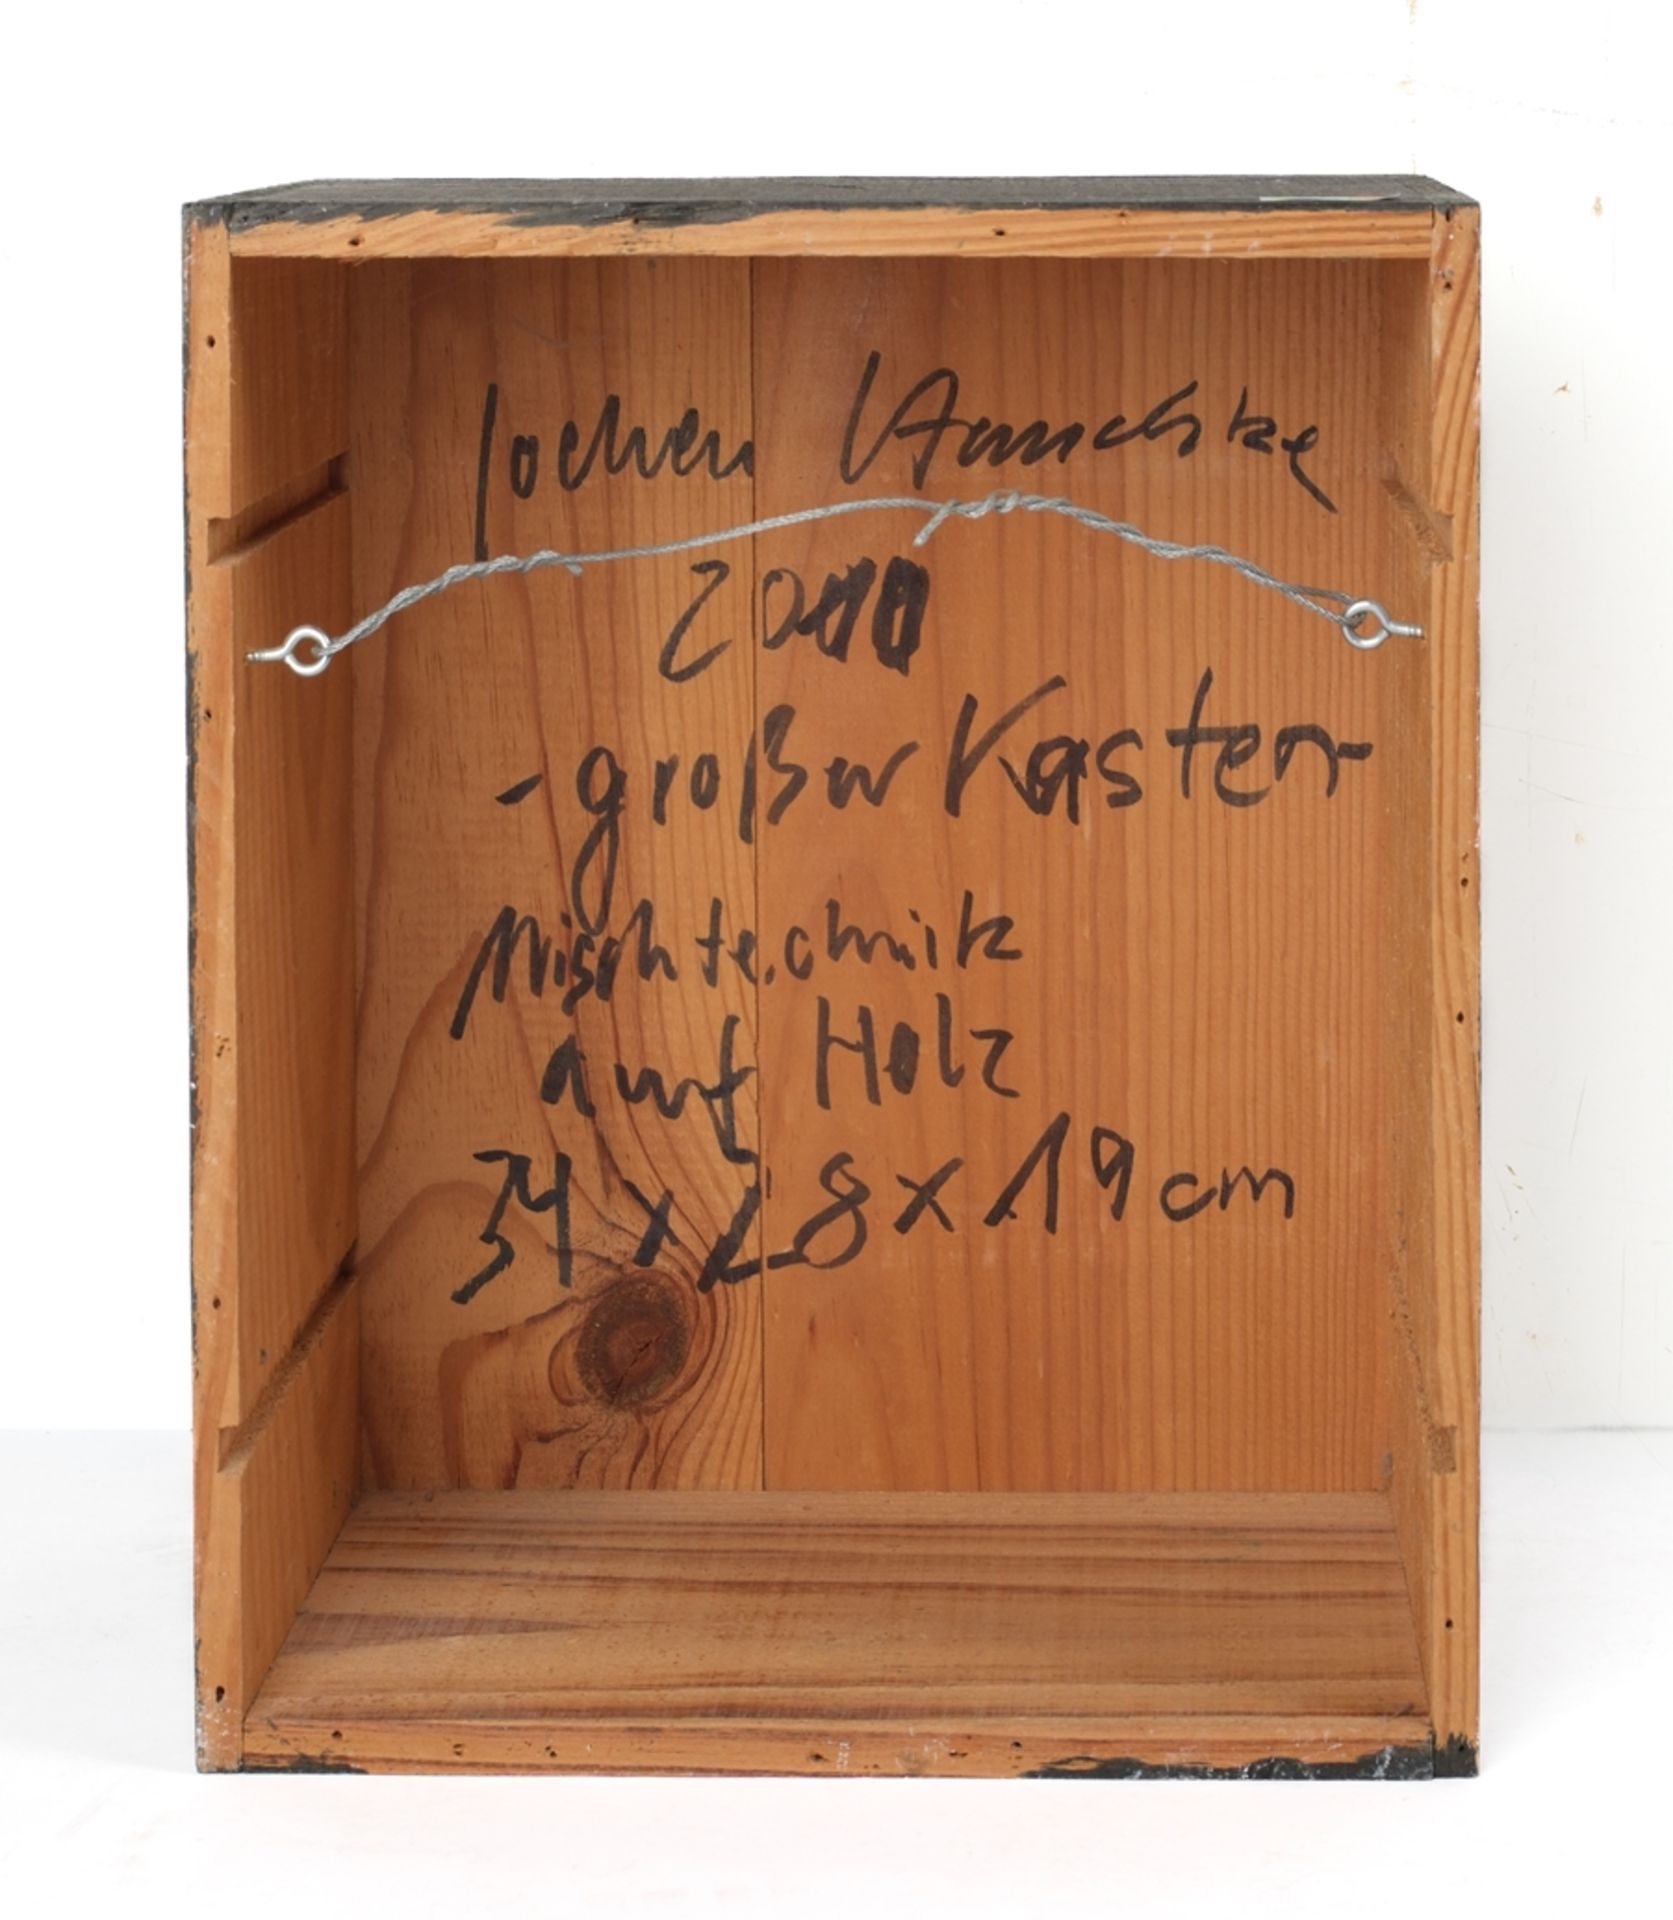 Jochen
2000
- großer Kasten -
Mischtechnik
auf Holz
34 x 28 x 19 cm